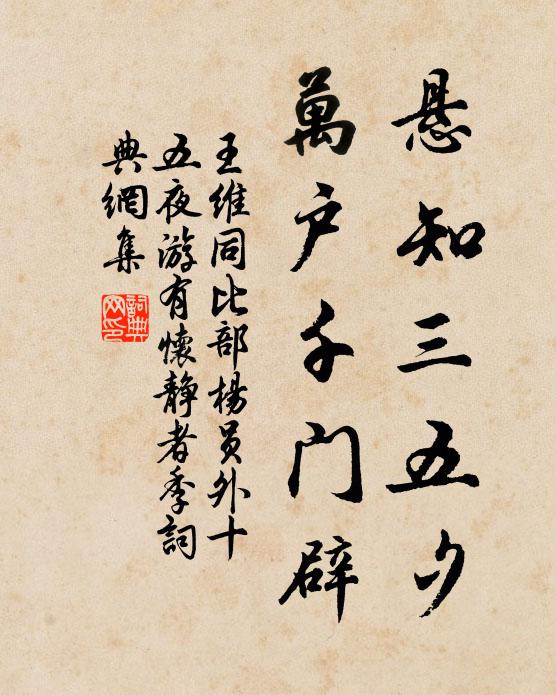 悬知三五夕
萬户千门辟
王维同比部楊员外十
五夜游有懷静者季詞
典網集
詞典
网印